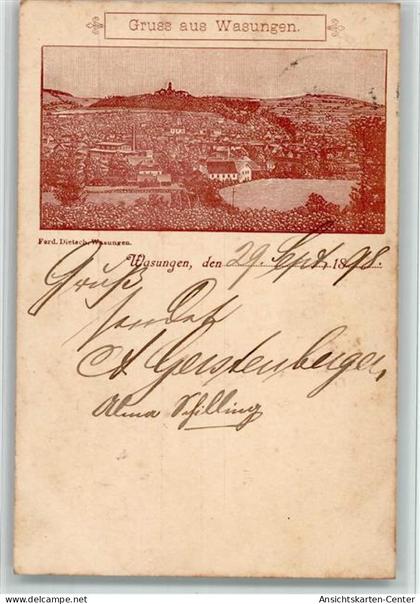 Gruss aus Wasungen.
Ferd. Dietsch, Wasungen.
Wasungen, den 29. Sept. 1898.
Gruß
sendet
A. Gerstenberger,
Alma Schilling
www.delcampe.net
Ansichtskarten-Center